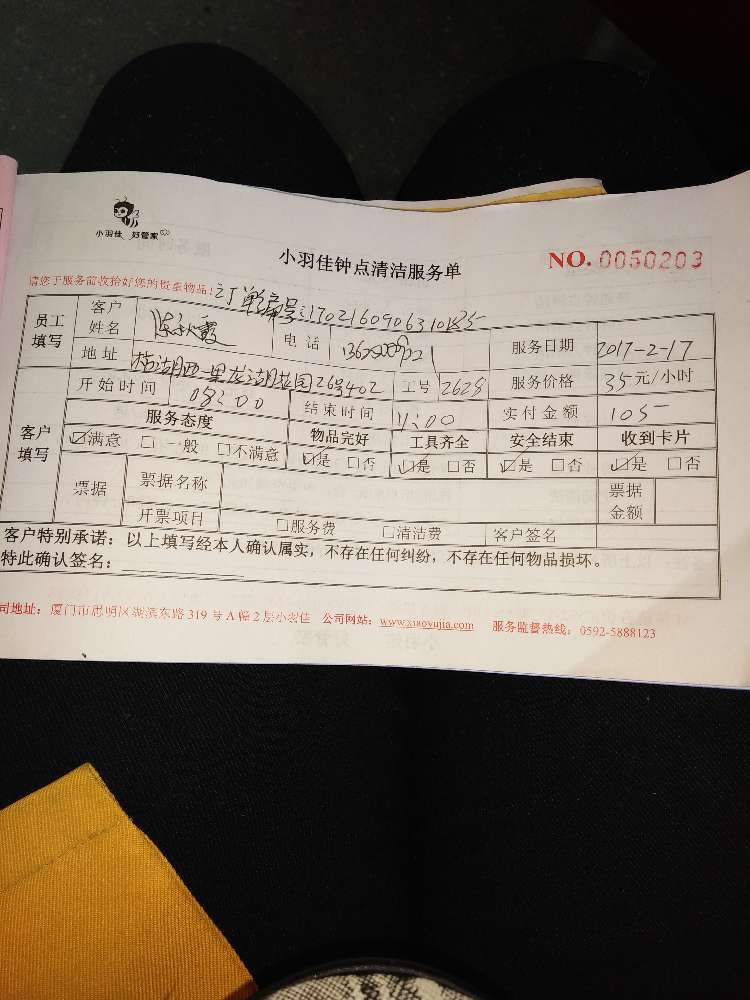 小羽佳 好管家
小羽佳钟点清洁服务单
NO. 0050203
请您于服务前收拾好您的贵重物品!
订单编号:170216090631
员工填写
客户姓名 电话 服务日期 2017-2-17
地址 26号402 工号 2628 服务价格 35元/小时
客户填写
开始时间 08:00 结束时间 11:00 实付金额 105
服务态度 物品完好 工具齐全 安全结束 收到卡片
☑满意 □一般 □不满意 ☑是 □否 ☑是 □否 ☑是 □否 ☑是 □否
票据 票据名称 票据金额
开票项目 □服务费 □清洁费 客户签名
客户特别承诺:以上填写经本人确认属实,不存在任何纠纷,不存在任何物品损坏。
特此确认签名:
司地址:厦门市思明区湖滨东路319号A幢2层小羽佳 公司网站:www.xiaoyujia.com 服务监督热线:0592-5888123